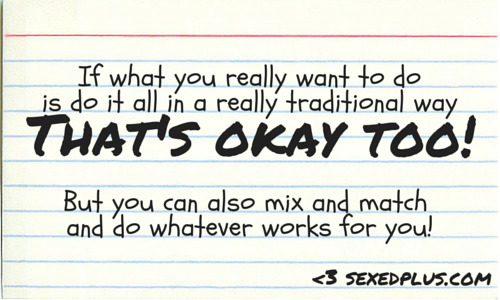 If what you really want to do
is do it all in a really traditional way
THAT'S OKAY TOO!
But you can also mix and match
and do whatever works for you!
<3 SEXEDPLUS.COM